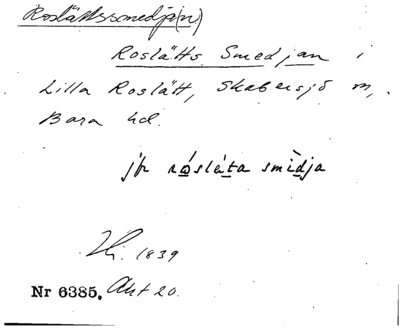 Roslättssmedja(n)
Roslätts Smedjan i
Lilla Roslätt, Skabersjö sn,
Bara hd.
jfr rósláta smìdja
1839
Nr 6385. Akt 20.